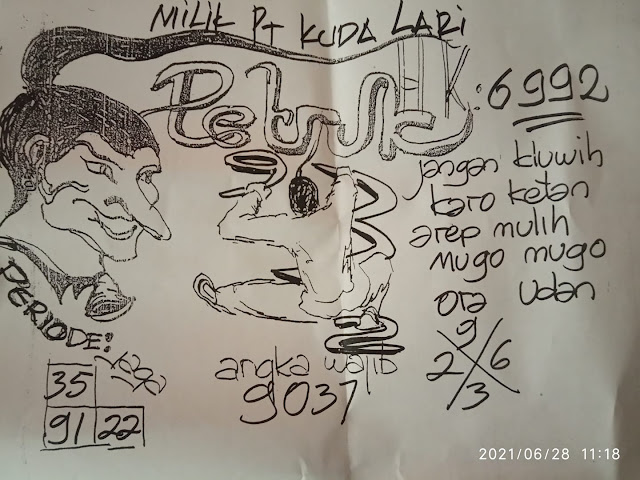 MILIK PT KUDA LARI
Petruk
EK: 6992
jangan kluwih
karo ketan
arep mulih
mugo mugo
ora udan
PERIODE:
35
91 22
angka wajib
9037
9
2 6
3
2021/06/28 11:18